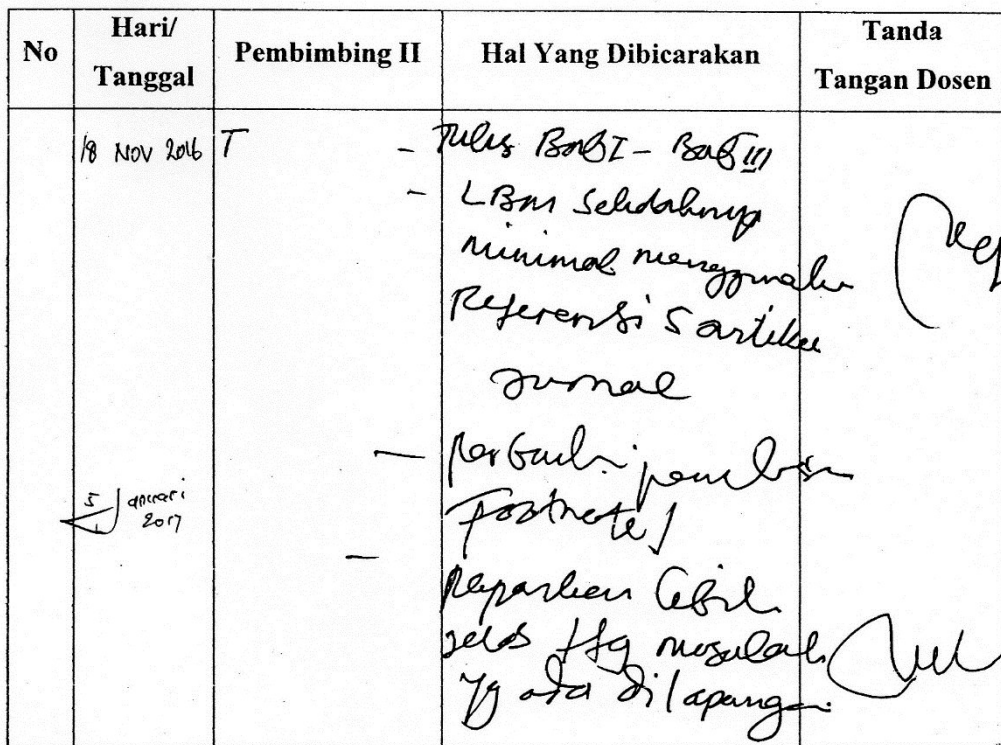 No
Hari/
Tanggal
Pembimbing II
Hal Yang Dibicarakan
Tanda
Tangan Dosen
18 NOV 2016
T
- Tulis Bab I - Bab III
- LBM Setidaknya
minimal menggunakan
Referensi 5 artikel
Jurnal
5 Januari
2017
- Perbaiki penulisan
Footnote
- Paparkan lebih
jelas ttg masalah
yg ada dilapangan